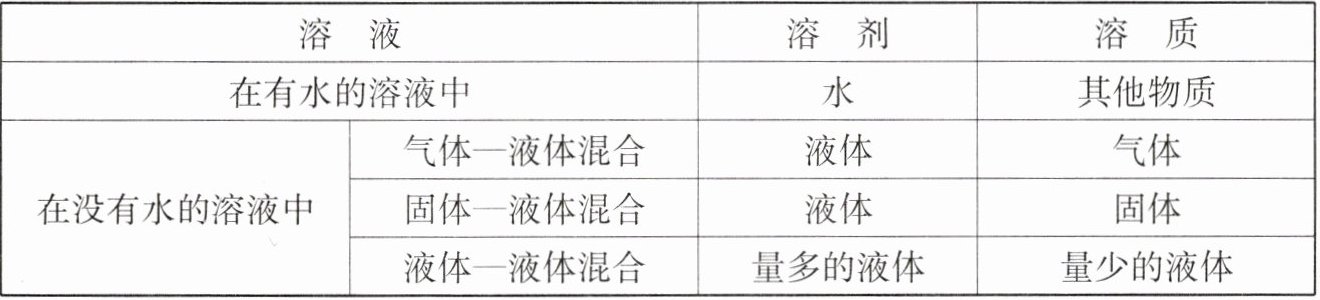 溶 液 溶 剂 溶 质
在有水的溶液中 水 其他物质
气体—液体混合 液体 气体
在没有水的溶液中 固体—液体混合 液体 固体
液体—液体混合 量多的液体 量少的液体